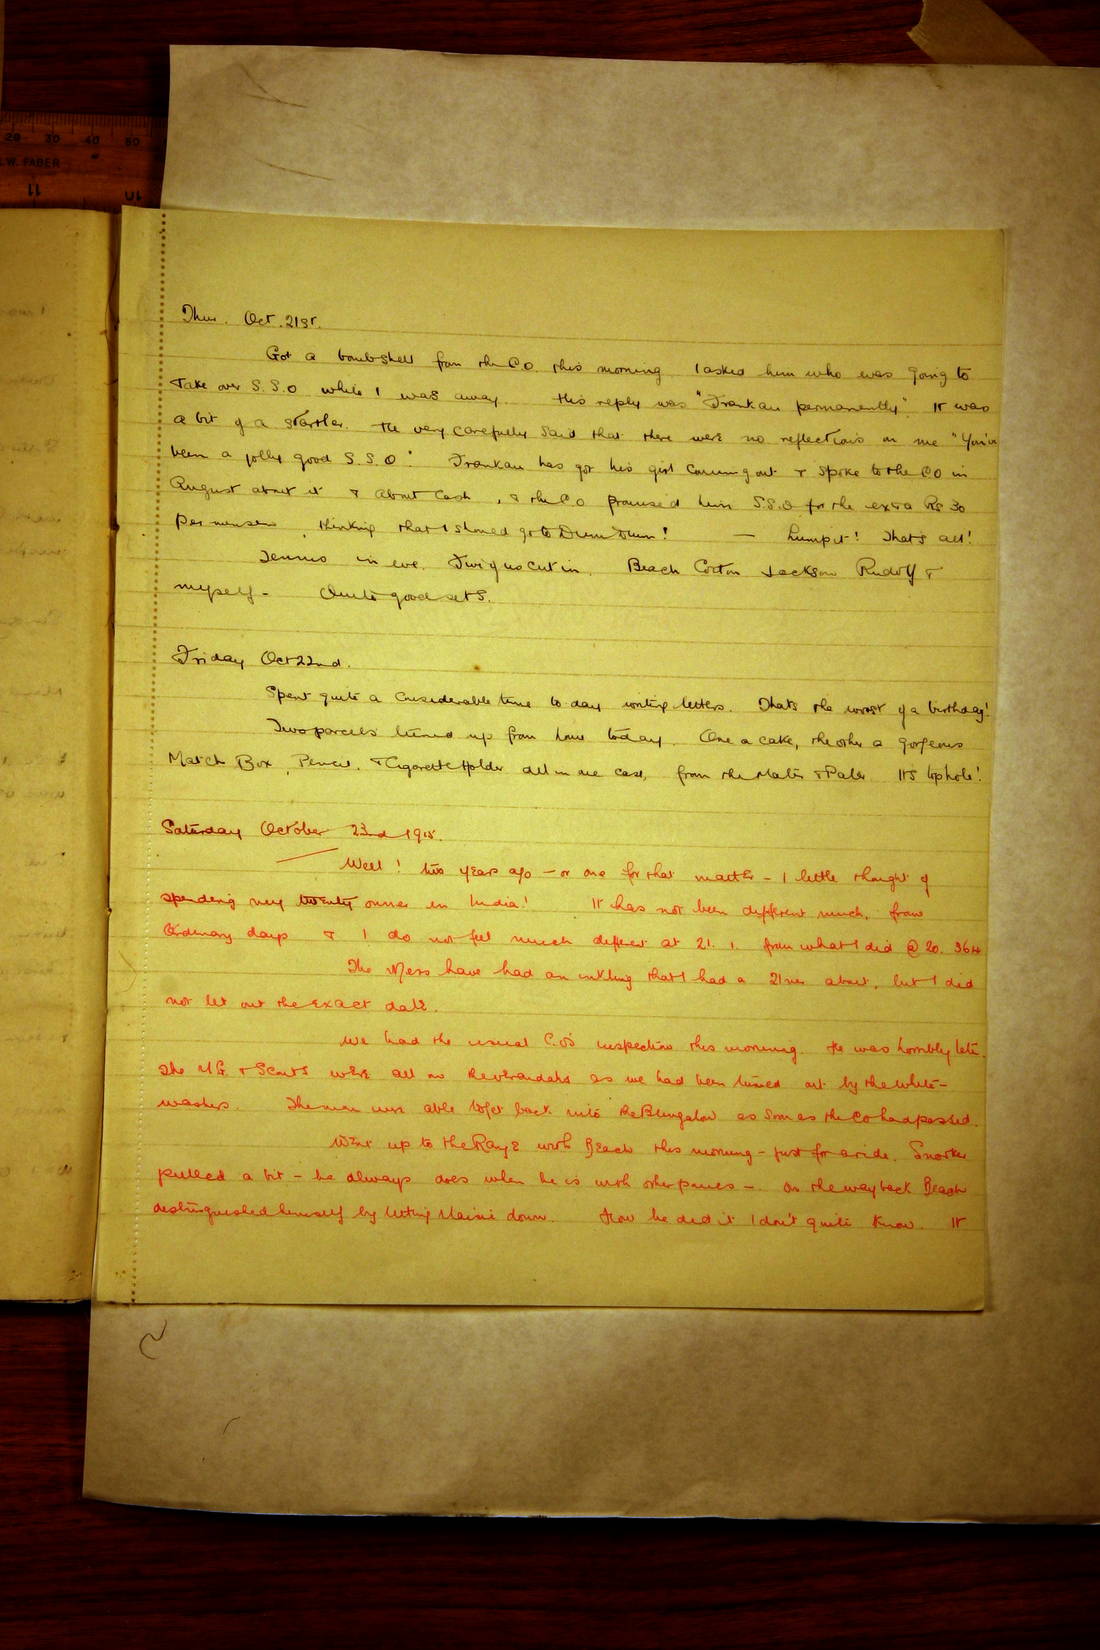 20 30 40 50
W. FABER
11 10
Thur. Oct. 21st.
Got a bombshell from the C.O. this morning I asked him who was going to
take over S.S.O while I was away. His reply was "Frankau permanently". It was
a bit of a startler. He very carefully said that there were no reflections on me "You've
been a jolly good S.S.O". Frankau has got his girl coming out & spoke to the CO in
August about it & about cash, & the C.O promised him S.S.O for the extra Rs 30
per mensem, thinking that I should go to Dum Dum! — Lump it! That's all!
Tennis in eve. Twiggs cut in. Beach Cotton Jackson Rudolf &
myself - Quite good sets.
Friday Oct 22nd.
Spent quite a considerable time to-day writing letters. That's the worst of a birthday!
Two parcels turned up from home today. One a cake, the other a gorgeous
Match Box, Pencil, & Cigarette Holder all in one case, from the Mater & Pater. It's tophole!
Saturday October 23rd 1915.
Well! two years ago - or one for that matter - I little thought of
spending my twenty oner in India! It has not been different much, from
Ordinary days & I do not feel much different at 21. 1. from what I did @ 20. 364
The Mess have had an inkling that I had a 21ner about, but I did
not let out the exact date.
We had the usual C.O's inspection this morning. He was horribly late.
The M.G. & Scouts were all on the verandahs as we had been turned out by the white-
washers. The men were able to get back into the Bungalow as soon as the CO had passed.
Went up to the Range with Beach this morning - just for a ride. Snorker
pulled a bit - he always does when he is with other ponies - On the way back Beach
distinguished himself by letting Maisie down. How he did it I don't quite know. It